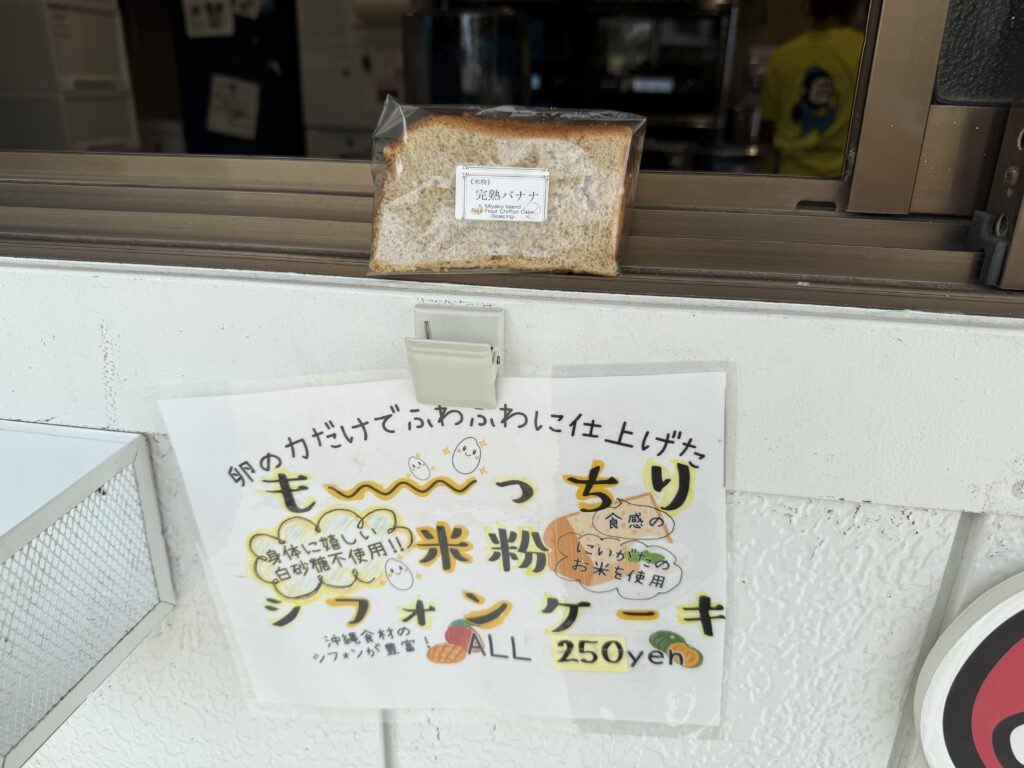 《米粉》
完熟バナナ
Miyako Island
Rice Flour Chiffon Cake
卵の力だけでふわふわに仕上げた
も〜〜っちり
食感の
身体に嬉しい
白砂糖不使用!!
米粉
にいがたの
お米を使用
シフォンケーキ
沖縄食材の
シフォンが豊富!
ALL 250yen